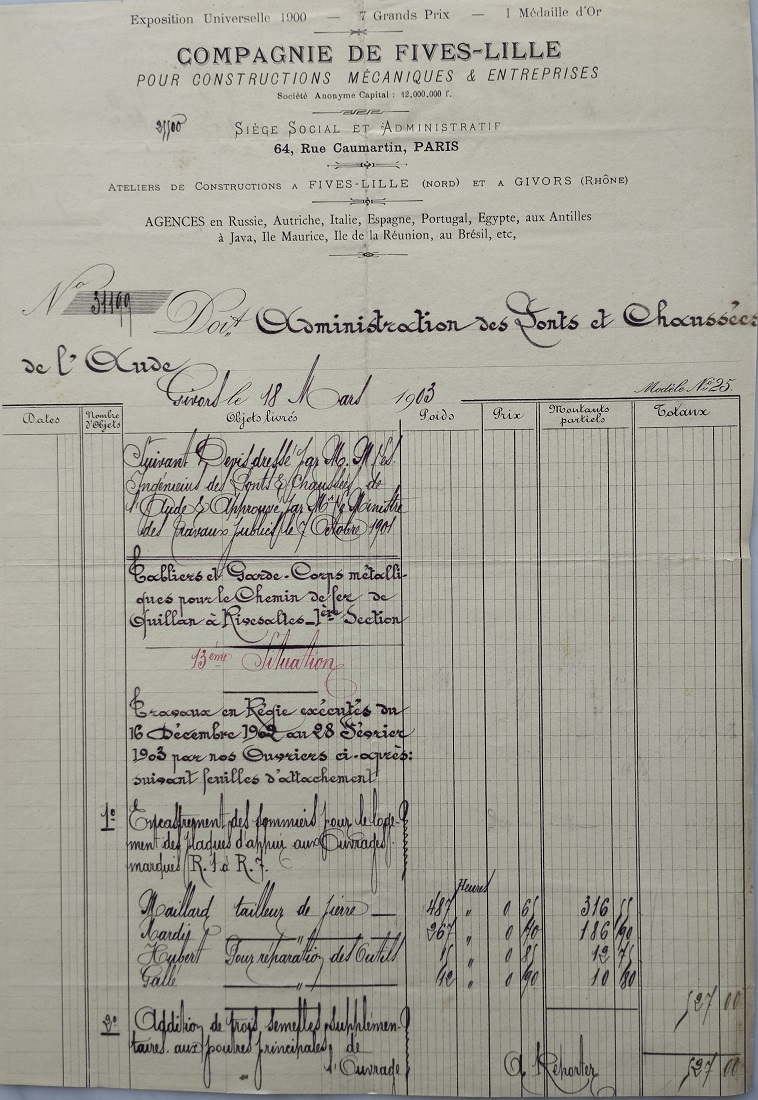 Exposition Universelle 1900 — 7 Grands Prix — 1 Médaille d'Or
COMPAGNIE DE FIVES-LILLE
POUR CONSTRUCTIONS MÉCANIQUES & ENTREPRISES
Société Anonyme Capital : 12,000,000 f.
SIÈGE SOCIAL ET ADMINISTRATIF
64, Rue Caumartin, PARIS
ATELIERS DE CONSTRUCTIONS A FIVES-LILLE (NORD) ET A GIVORS (RHÔNE)
AGENCES en Russie, Autriche, Italie, Espagne, Portugal, Egypte, aux Antilles
à Java, Ile Maurice, Ile de la Réunion, au Brésil, etc,
No 31199 Doit Administration des Ponts et Chaussées
de l'Aude
Givors le 18 Mars 1903
Modèle No 25.
Dates Nombre d'Objets Objets livrés Poids Prix Montants partiels Totaux
Suivant Devis dressé par M. M. les
Ingénieurs des Ponts & Chaussées de
l'Aude & Approuvé par Mr le Ministre
des Travaux publics le 7 Octobre 1901
Tabliers et Garde-Corps métalli-
ques pour le Chemin de fer de
Quillan à Rivesaltes_1ère Section
13ème Situation
Travaux en Régie exécutés du
16 Décembre 1902 au 28 Février
1903 par nos Ouvriers ci-après:
suivant feuilles d'attachement
1o Encastrement des sommiers pour le loge-
ment des plaques d'appui aux Ouvrages
marqués R.1 à R.7.
Heures
Maillard tailleur de pierre — 487 " 0 65 316 55
267 " 0 70 186 90
Hubert Pour réparation des Outils 15 " 0 85 12 75
Gallé " 12 " 0 90 10 80
527 00
2o Addition de trois semelles supplémen-
taires aux poutres principales de
l'Ouvrage
A Reporter 527 00